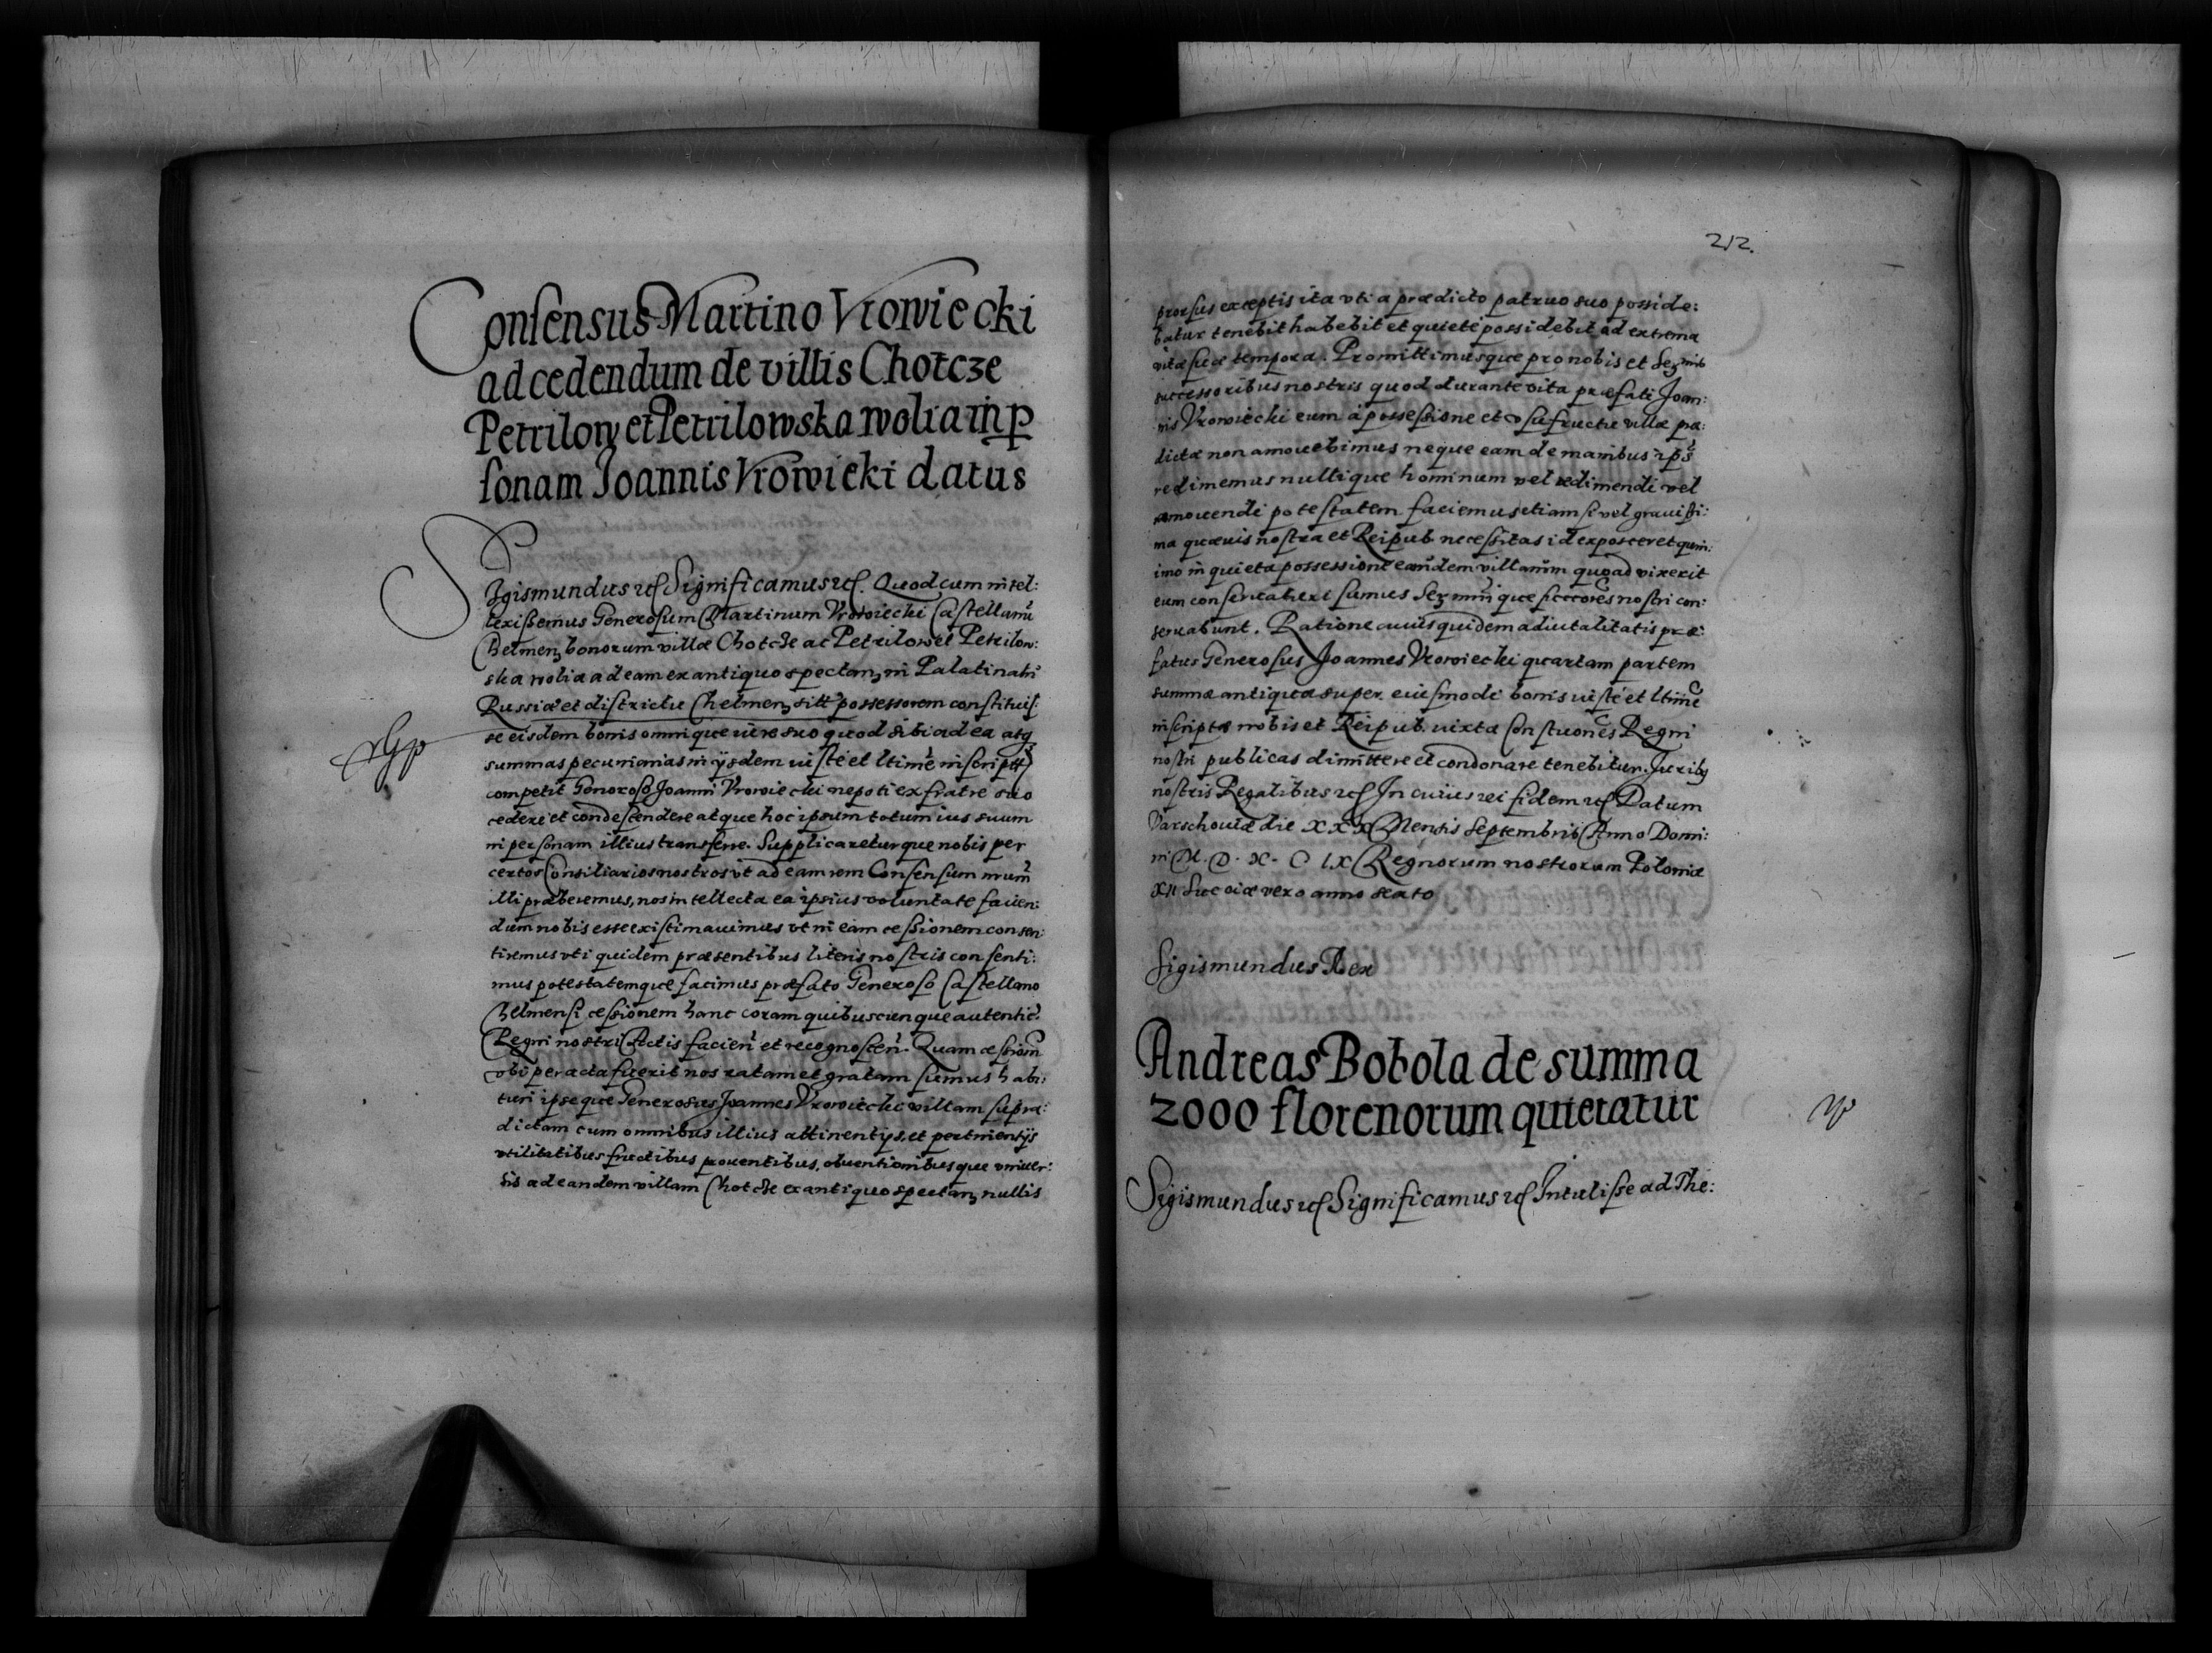 Consensus Martino Vrowiecki
ad cedendum de villis Chotcze
Petrilow et Petrilowska wolia in p
sonam Joannis Vrowicki datus
Sigismundus etc Significamus etc. Quod cum intel:
lexissemus Generosum Martinum Vrowiecki Castellanū
Chelmen bonorum villæ Chotcze ac Petrilow et Petrilow:
ska wolia ad eam ex antiquo spectan in Palatinatu
Russiæ et districtu Chelmen sitt possessorem constituis:
se eisdem bonis omnique iure suo quod sibi ad ea atq
summas pecuniarias in ijsdem iuste et ltime inscriptt
competit Generoso Joanni Vrowiecki nepoti ex fratre suo
cedere et condescendere atque hoc ipsum totum ius suum
in personam illius transferre. Supplicareturque nobis per
certos Consiliarios nostros vt ad eam rem Consensum nrum
illi præberemus, nos intellecta ea ipsius voluntate facien:
dum nobis esse existimauimus vt in eam cessionem consen:
tiremus vti quidem præsentibus literis nostris consenti:
mus potestatemque facimus præfato Generoso Castellano
Chelmensi cessionem hanc coram quibuscunque autentic.
Regni nostri Actis facien et recognoscen. Quam cessionem
vbi peracta fuerit nos ratam et gratam sumus habi:
turi ipseque Generosus Joannes Vrowiecki villam supra:
dictam cum omnibus illius attinentijs, et pertinentijs
vtilitatibus fructibus prouentibus, obuentionibusque vniuer:
sis ad eandem villam Chotcze ex antiquo spectan nullis
212.
prorsus exceptis ita vti a prædicto patruo suo posside:
batur tenebit habebit et quiete possidebit ad extrema
vitæ suæ tempora. Promittimusque pro nobis et Sermis
successoribus nostris quod durante vita præfati Joan:
nis Vrowiecki eum a possessione et vsufructu villæ præ:
dictæ non amouebimus neque eam de manibus ips
redimemus nullique hominum vel redimendi vel
amouendi potestatem faciemus etiamsi vel grauissi:
ma quæuis nostra et Reipub. necessitas id exposceret quin:
imo in quieta possessione eandem villarum quoad vixerit
eum conseruaturi sumus Sermique succores nostri con:
seruabunt. Ratione cuius quidem aduitalitatis præ:
fatus Generosus Joannes Vrowiecki quartam partem
summæ antiquæ super eiusmodi bonis iuste et ltime
inscriptæ nobis et Reipub. iuxta Constuones Regni
nostri publicas dimittere et condonare tenebitur. Juribq
nostris Regalibus etc In cuius rei fidem etc Datum
Varschouiæ die XXX Mensis Septembris Anno Domi:
ni M. D. X. C IX Regnorum nostrorum Poloniæ
XII Sueciæ vero anno sexto
Sigismundus Rex
Andreas Bobola de summa
2000 florenorum quietatur
Sigismundus etc Significamus etc Intulisse ad The: